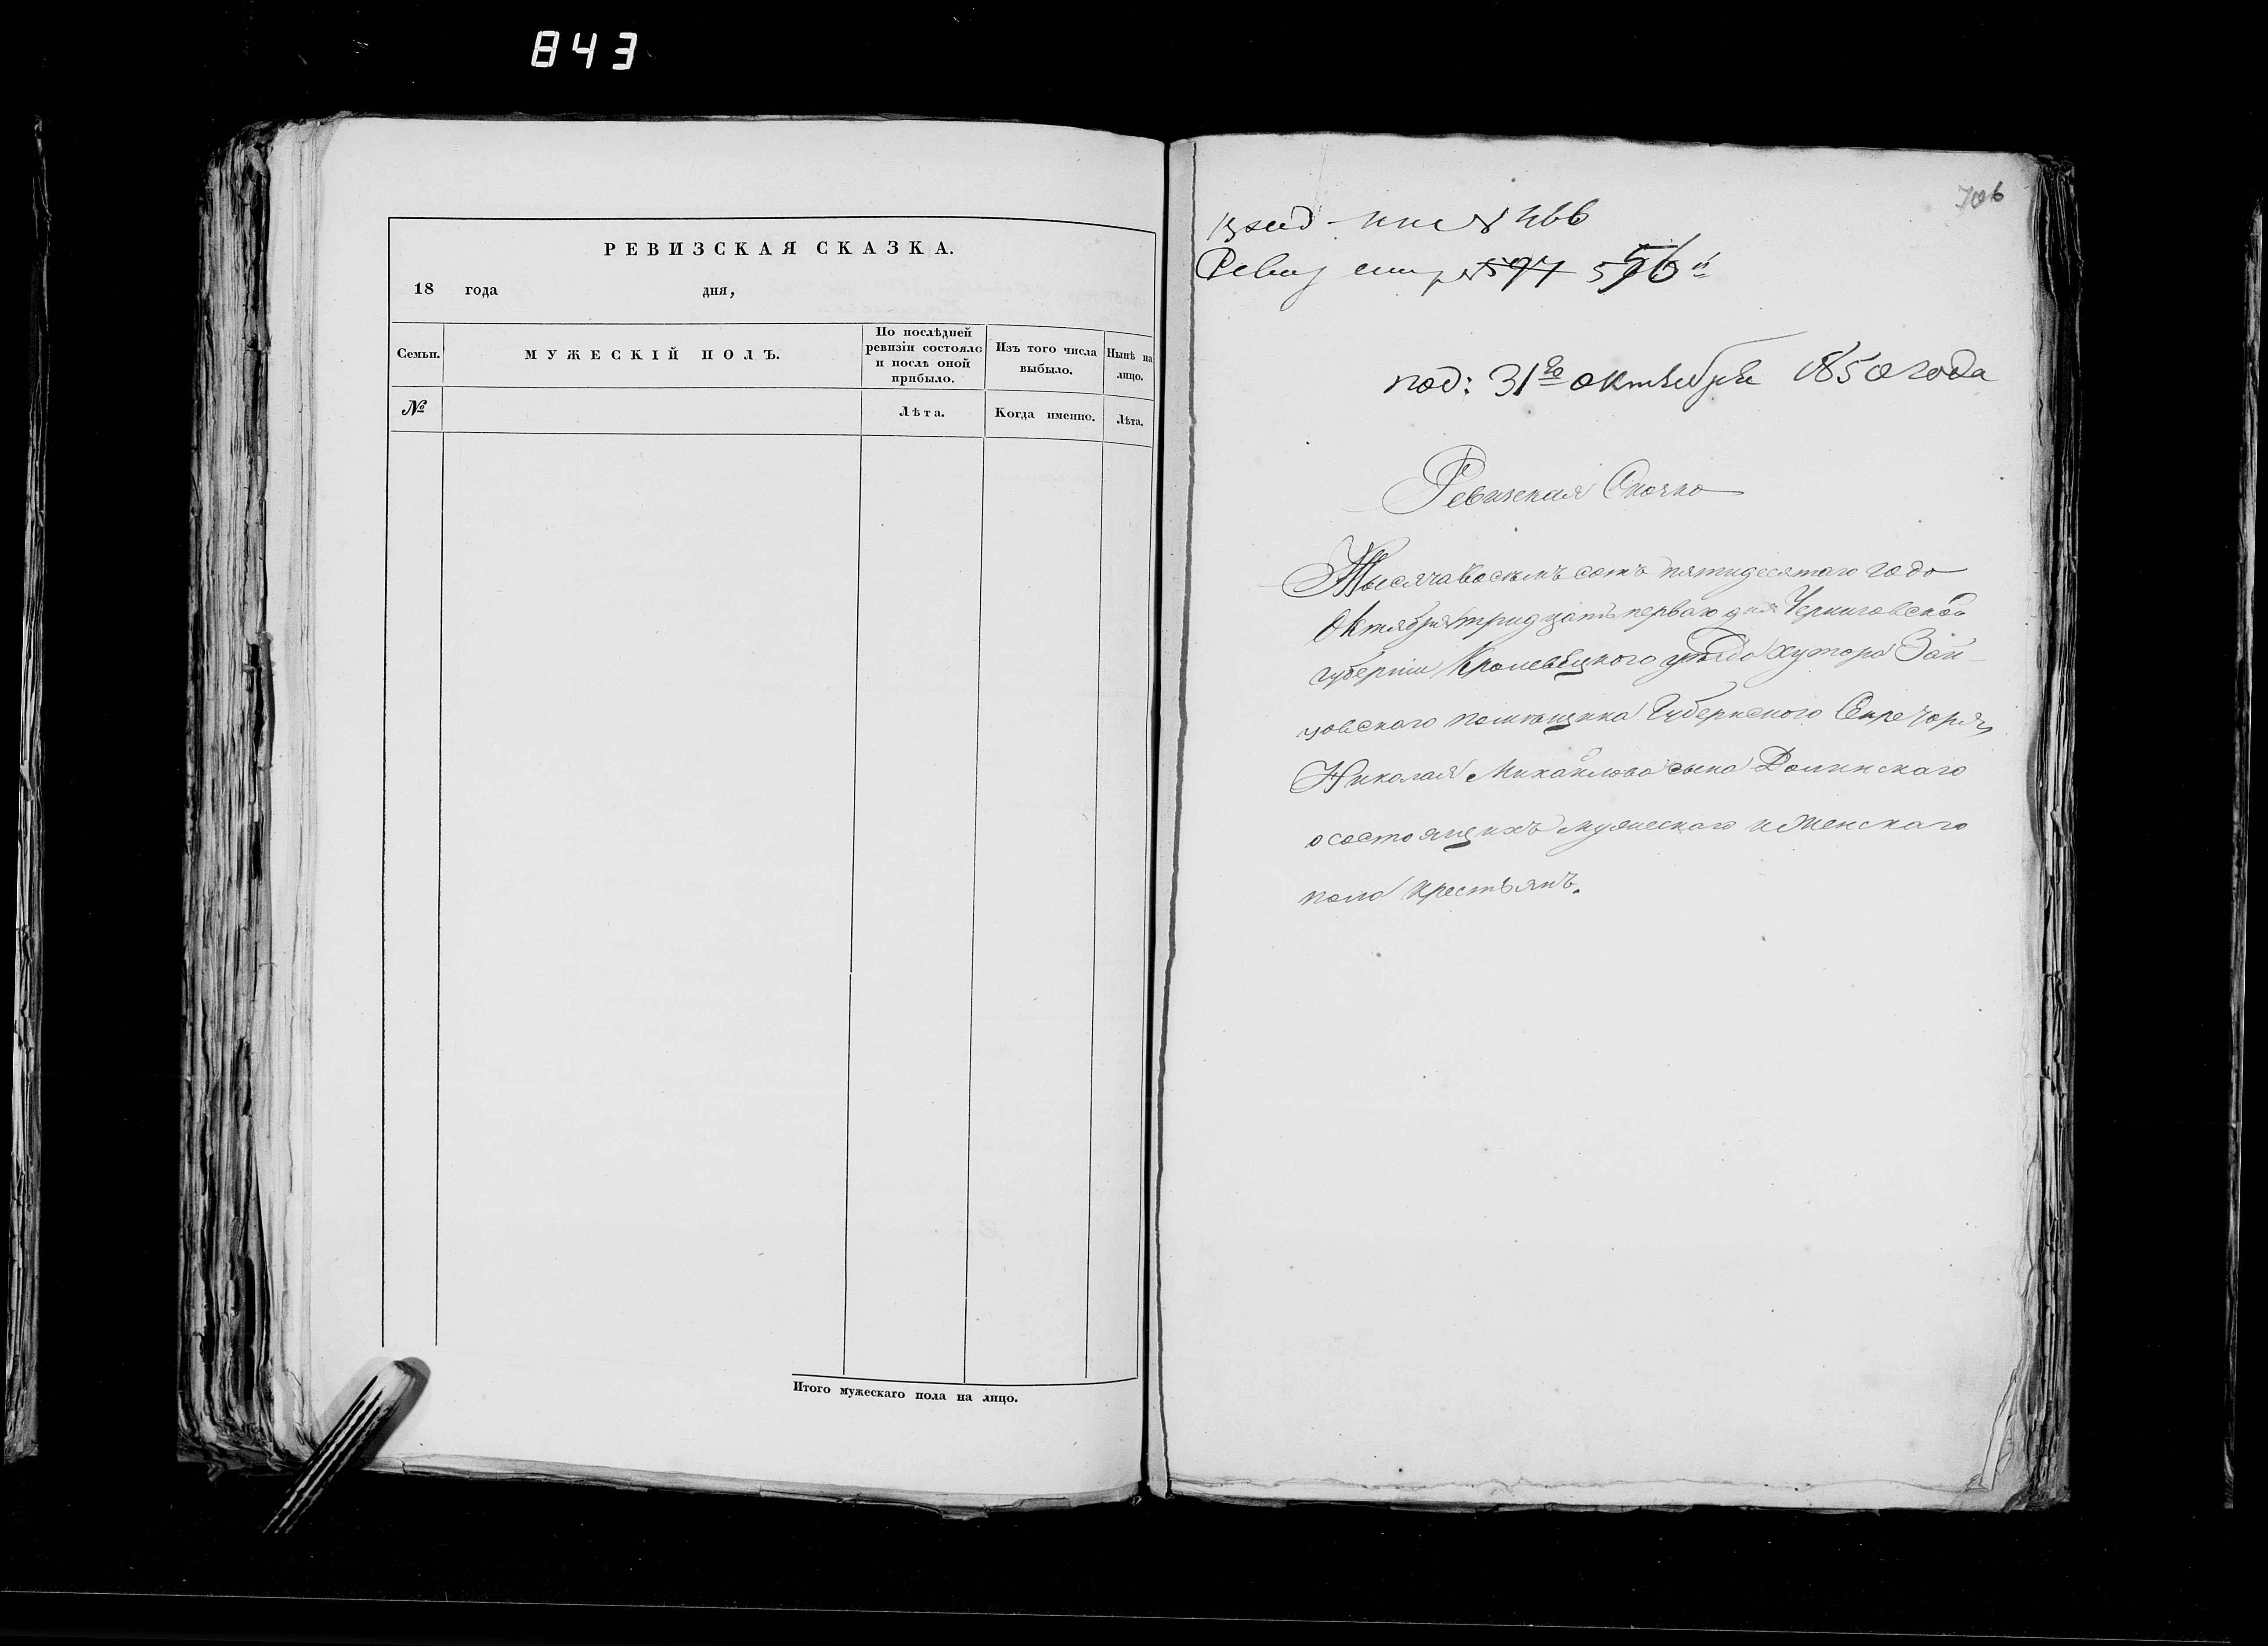 843
РЕВИЗСКАЯ СКАЗКА.
18 года дня,
Семьи.
МУЖЕСКІЙ ПОЛЪ.
По послѣдней ревизіи состояло и послѣ оной прибыло.
Изъ того числа выбыло.
Нынѣ на лицо.
№
Лѣта.
Когда именно.
Лѣта.
Итого мужескаго пола на лицо.
706
№ 466
Ревиз 597
под: 31го октября 1850 года
Ревизская Сказка
Тысяча восемъ сотъ пятидесятаго года
Октября тридцать перваго дня Черниговской
губерніи Кролевѣцкого уѣзда хутора Зай-
цовского помѣщика Губернского Секретаря
Николая Михайлова сына Долинскаго
о состоящихъ мужескаго и женскаго
пола крестьянъ.